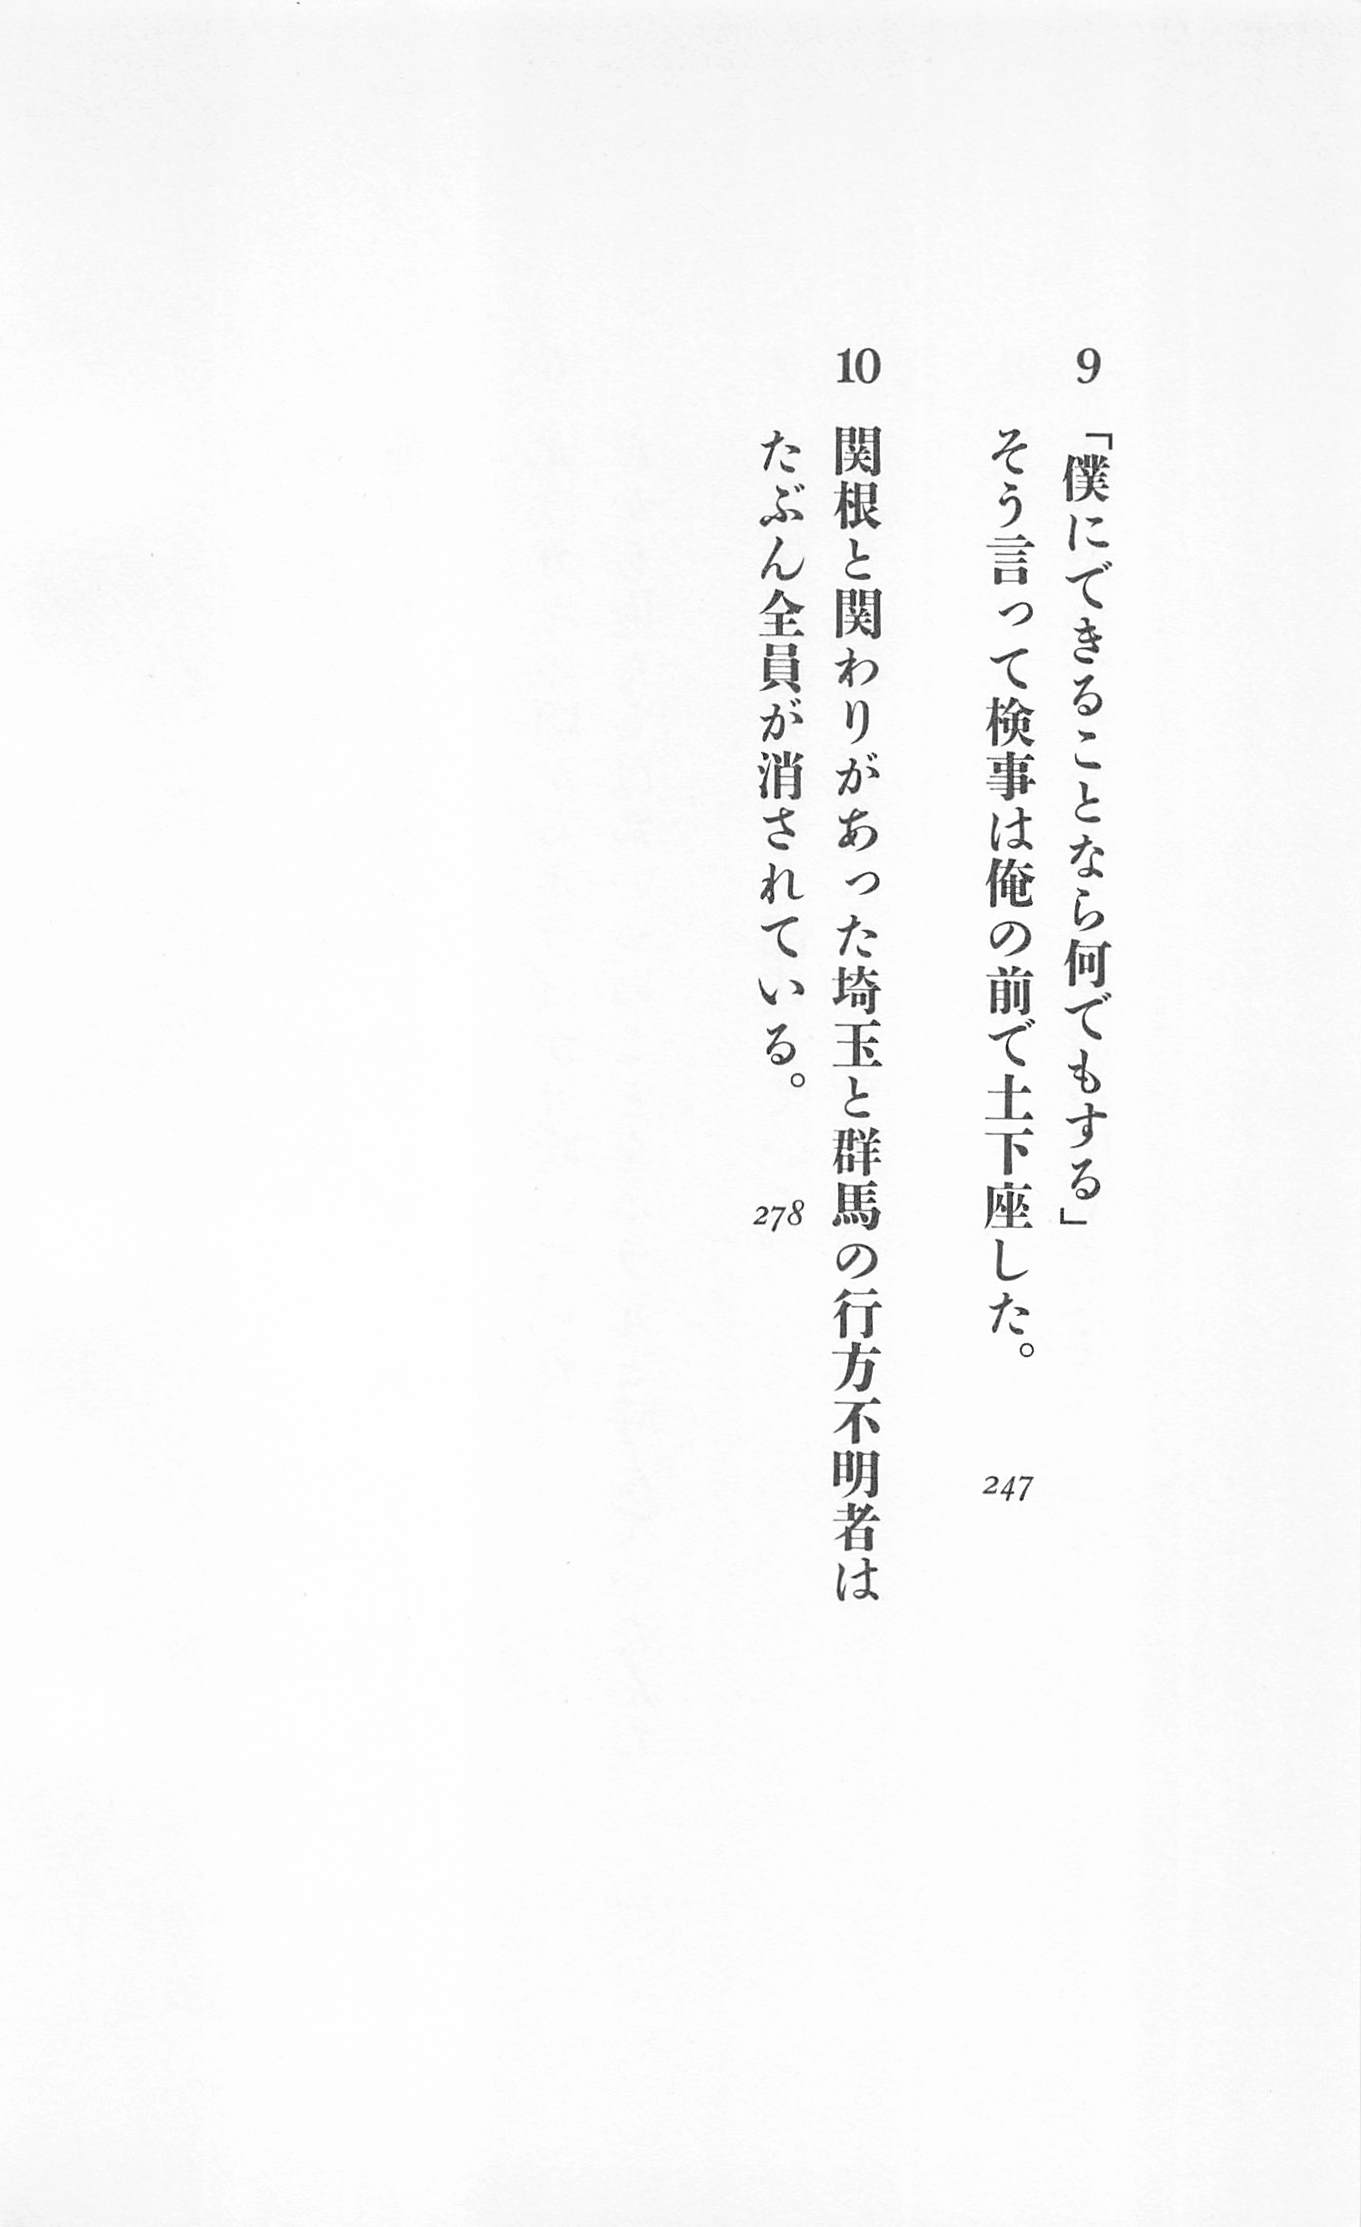 9 「僕にできることなら何でもする」
そう言って検事は俺の前で土下座した。 247
10 関根と関わりがあった埼玉と群馬の行方不明者は
たぶん全員が消されている。 278